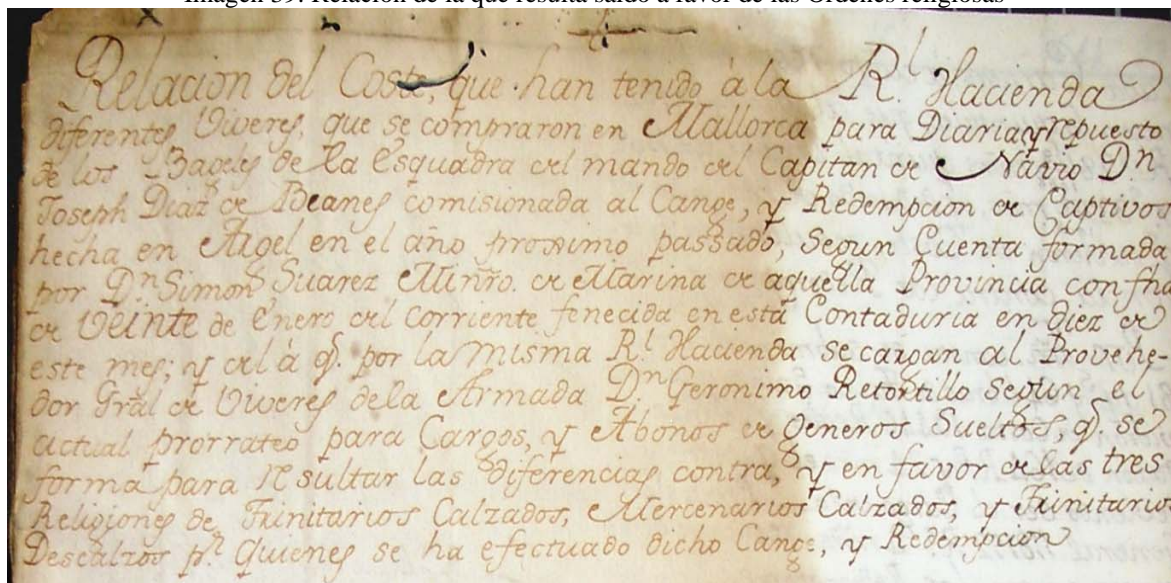 Imagen 39. Relación de la que resulta saldo a favor de las Ordenes religiosas
Relacion del Coste, que han tenido à la Rl. Hacienda
diferentes Viveres, que se compraron en Mallorca para Diaria, y repuesto
de los Bageles de la Esquadra del mando del Capitan de Navio Dn
Joseph Diaz de Beanes comisionada al Cange, y Redempcion de Captivos
hecha en Argel en el año proximo passado, Segun Cuenta formada
por Dn Simon Suarez Minro. de Marina de aquella Provincia con fha
de Veinte de Enero del corriente fenecida en esta Contaduria en diez de
este mes; y del à q. por la misma Rl. Hacienda se cargan al Provehe-
dor Gràl de Viveres de la Armada Dn Geronimo Retortillo Segun el
actual prorrateo para Cargos, y Abonos de Generos Sueltos, q. se
forma para resultar las diferencias contra, y en favor de las tres
Religiones de Trinitarios Calzados, Mercenarios Calzados, y Trinitarios
Descalzos pr. Quienes se ha efectuado dicho Cange, y Redempcion